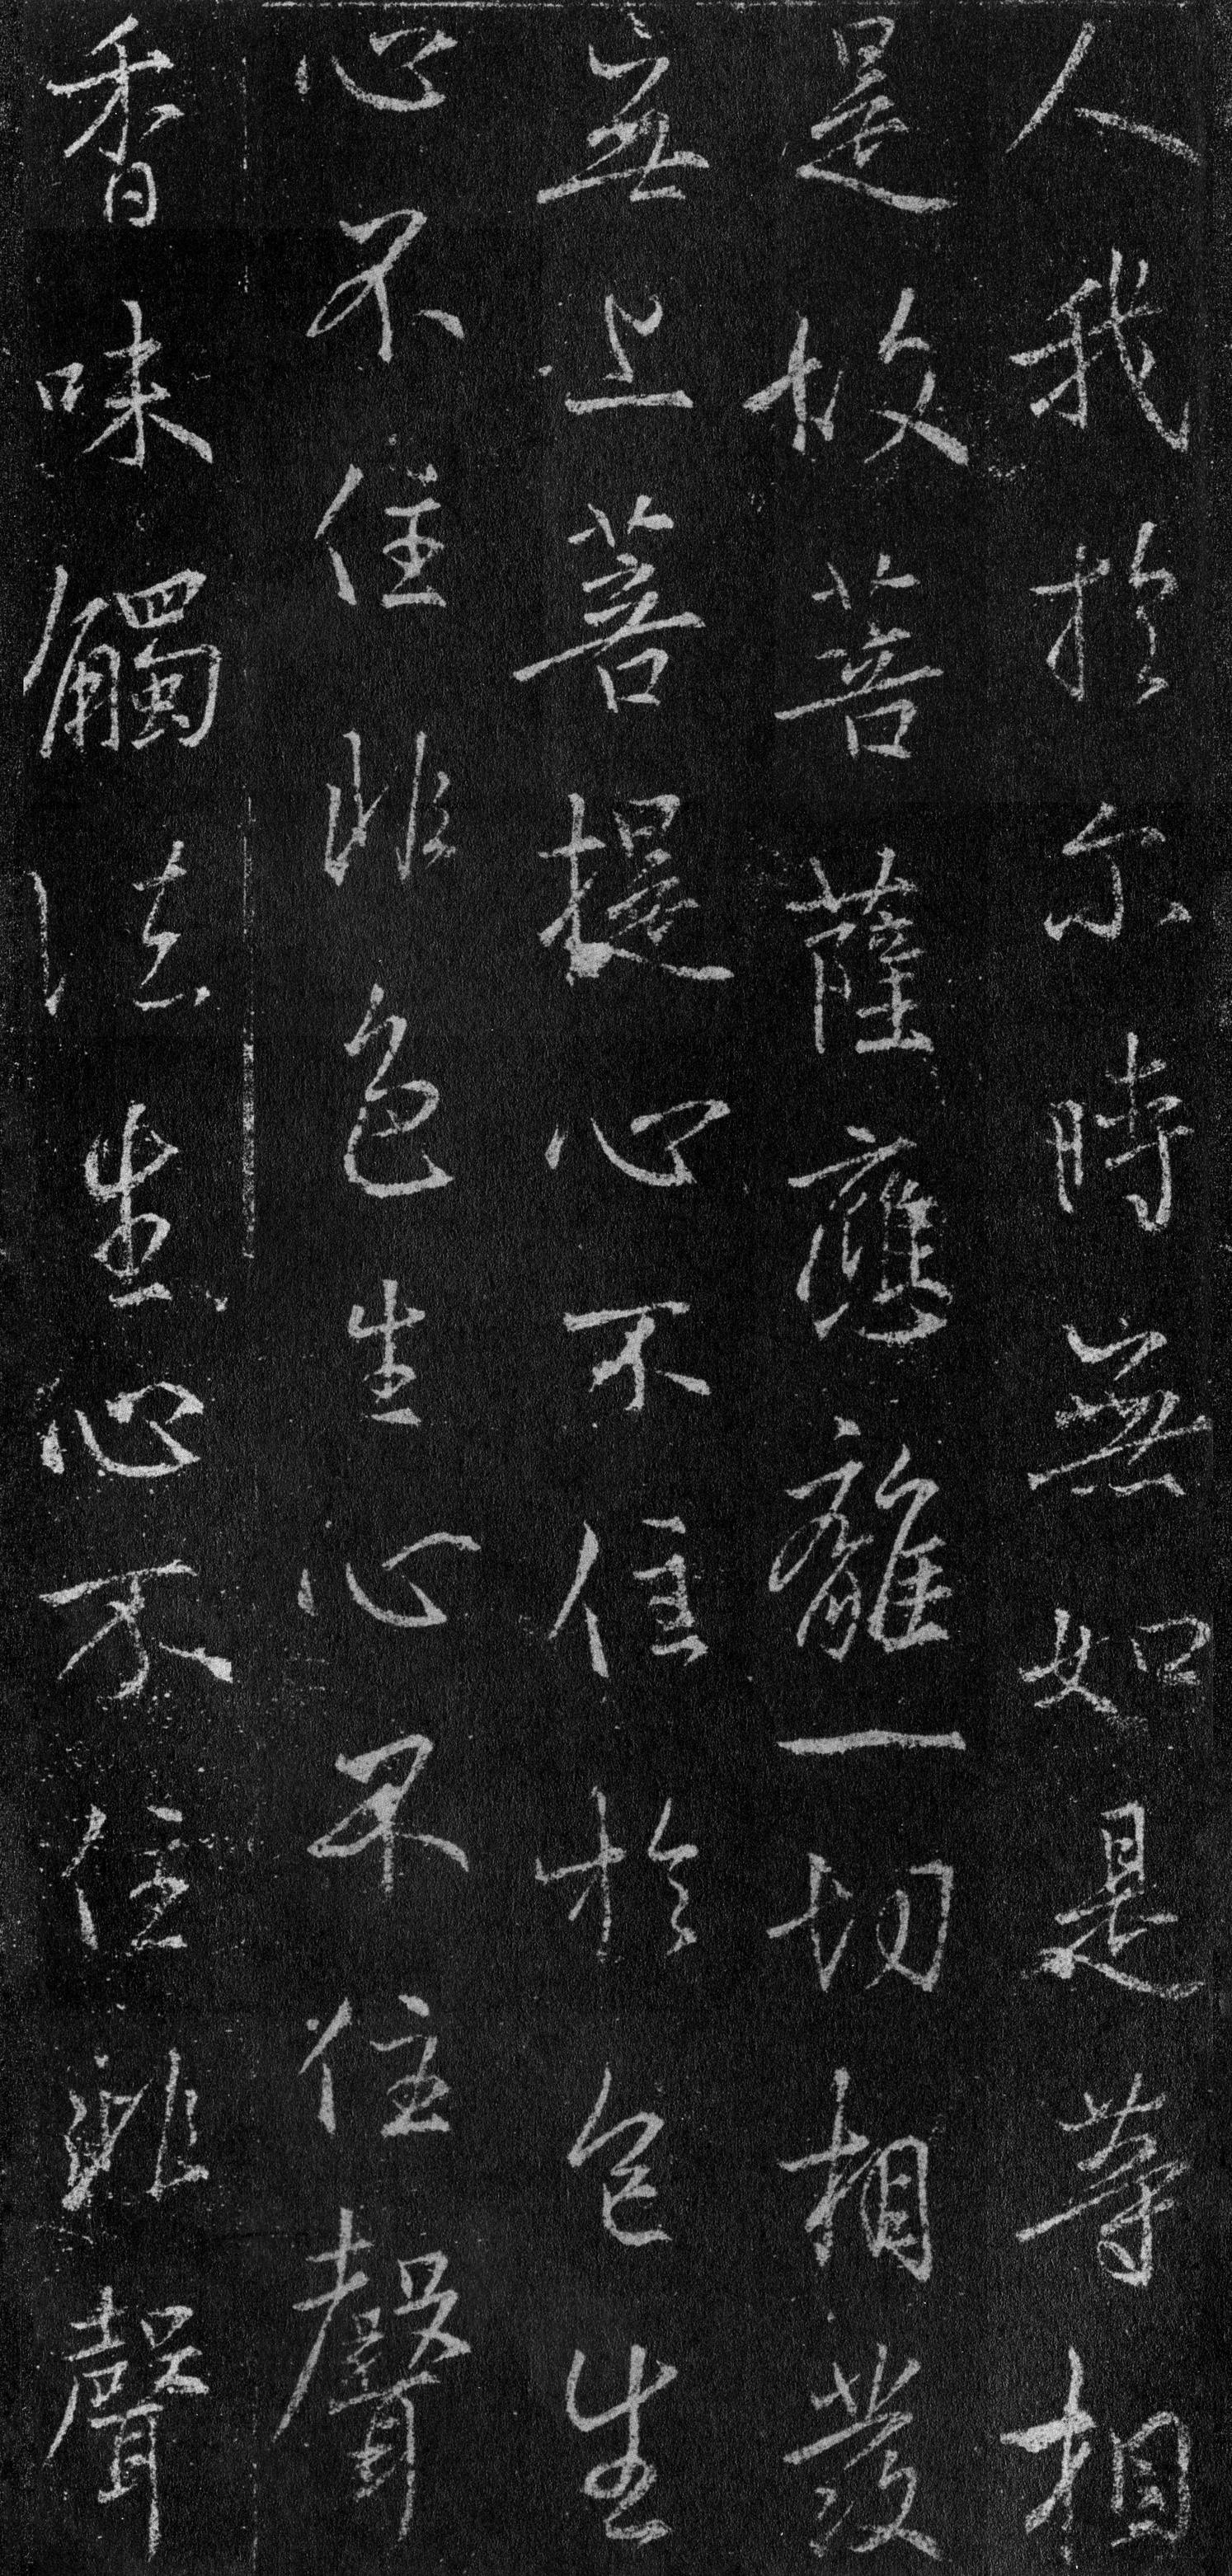 人我於尒時無如是等相
是故菩薩應離一切相發
無上菩提心不住於色生
心不住非色生心不住聲
香味觸法生心不住非聲